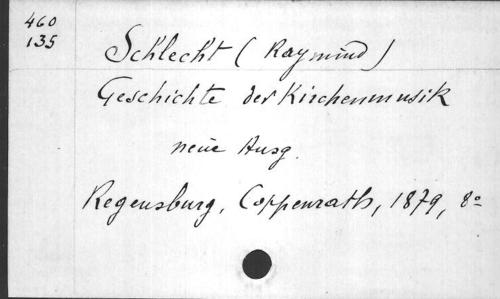 460
135
Schlecht (Raymund)
Geschichte der Kirchenmusik
neue Ausg.
Regensburg, Coppenrath, 1879, 8º